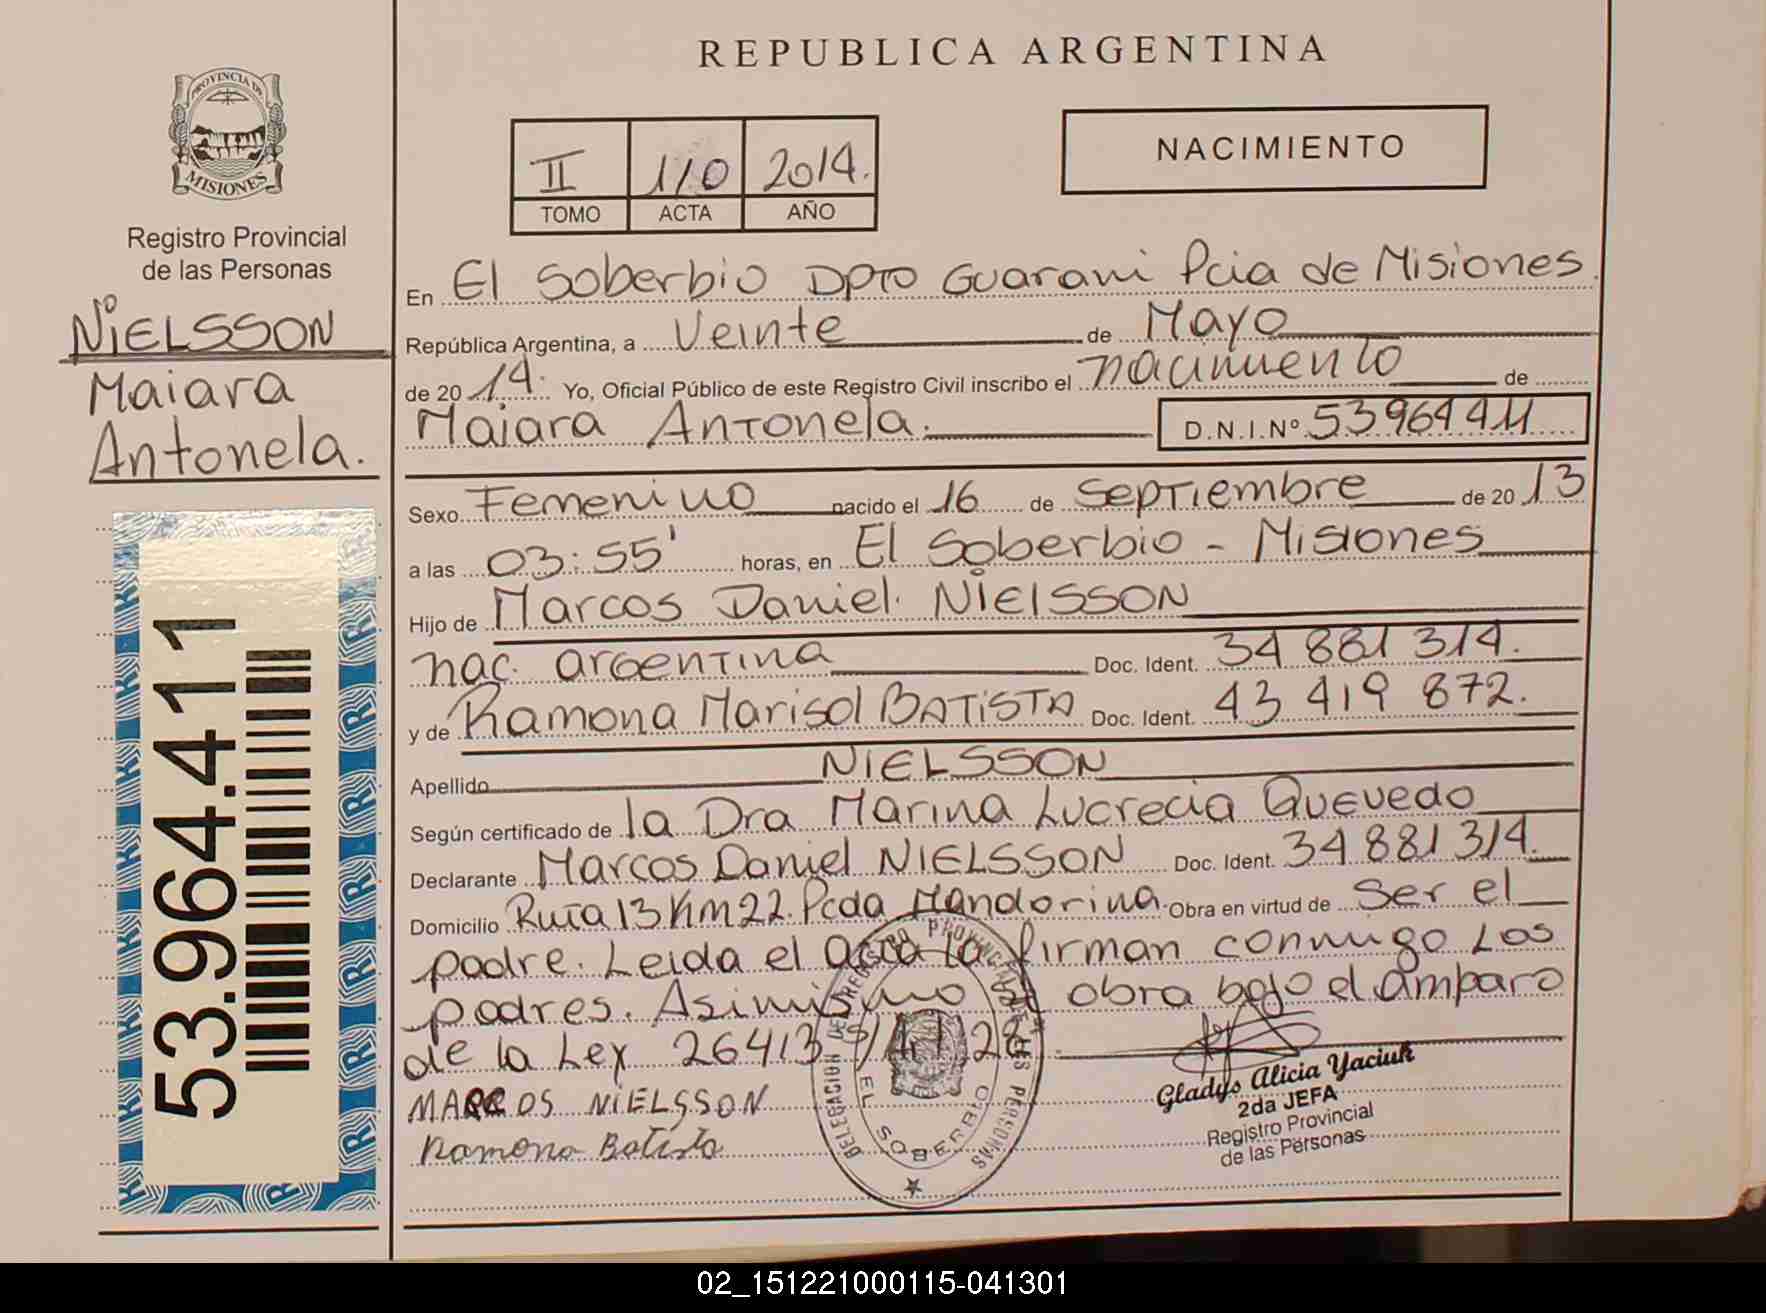 REPUBLICA ARGENTINA
PROVINCIA DE
MISIONES
Registro Provincial
de las Personas
NIELSSON
Maiara
Antonela.
53.964.411
II 110 2014.
TOMO ACTA AÑO
NACIMIENTO
En El Soberbio DPTO Guarani Pcia de Misiones.
República Argentina, a Veinte de Mayo
de 2014. Yo, Oficial Público de este Registro Civil inscribo el nacimiento de
Maiara Antonela. D.N.I.Nº 53964411
Sexo Femenino nacido el 16 de Septiembre de 2013
a las 03:55' horas, en El Soberbio - Misiones
Hijo de Marcos Daniel NIELSSON
nac. argentina Doc. Ident. 34 881 314.
y de Ramona Marisol BATISTA Doc. Ident. 43 419 872.
Apellido NIELSSON
Según certificado de la Dra Marina Lucrecia Quevedo
Declarante Marcos Daniel NIELSSON Doc. Ident. 34 881 314.
Domicilio Ruta 13 Km 22. Pcda Mandorina. Obra en virtud de ser el
padre. Leida el acta la firman conmigo los
padres. Asimismo obra bajo el amparo
de la Ley 26413 28
MARCOS NIELSSON
Ramona Batista
DELEGACION DEL REGISTRO PROVINCIAL DE LES PERSONAS
EL SOBERBIO
Gladys Alicia Yaciuk
2da JEFA
Registro Provincial
de las Personas
02_151221000115-041301